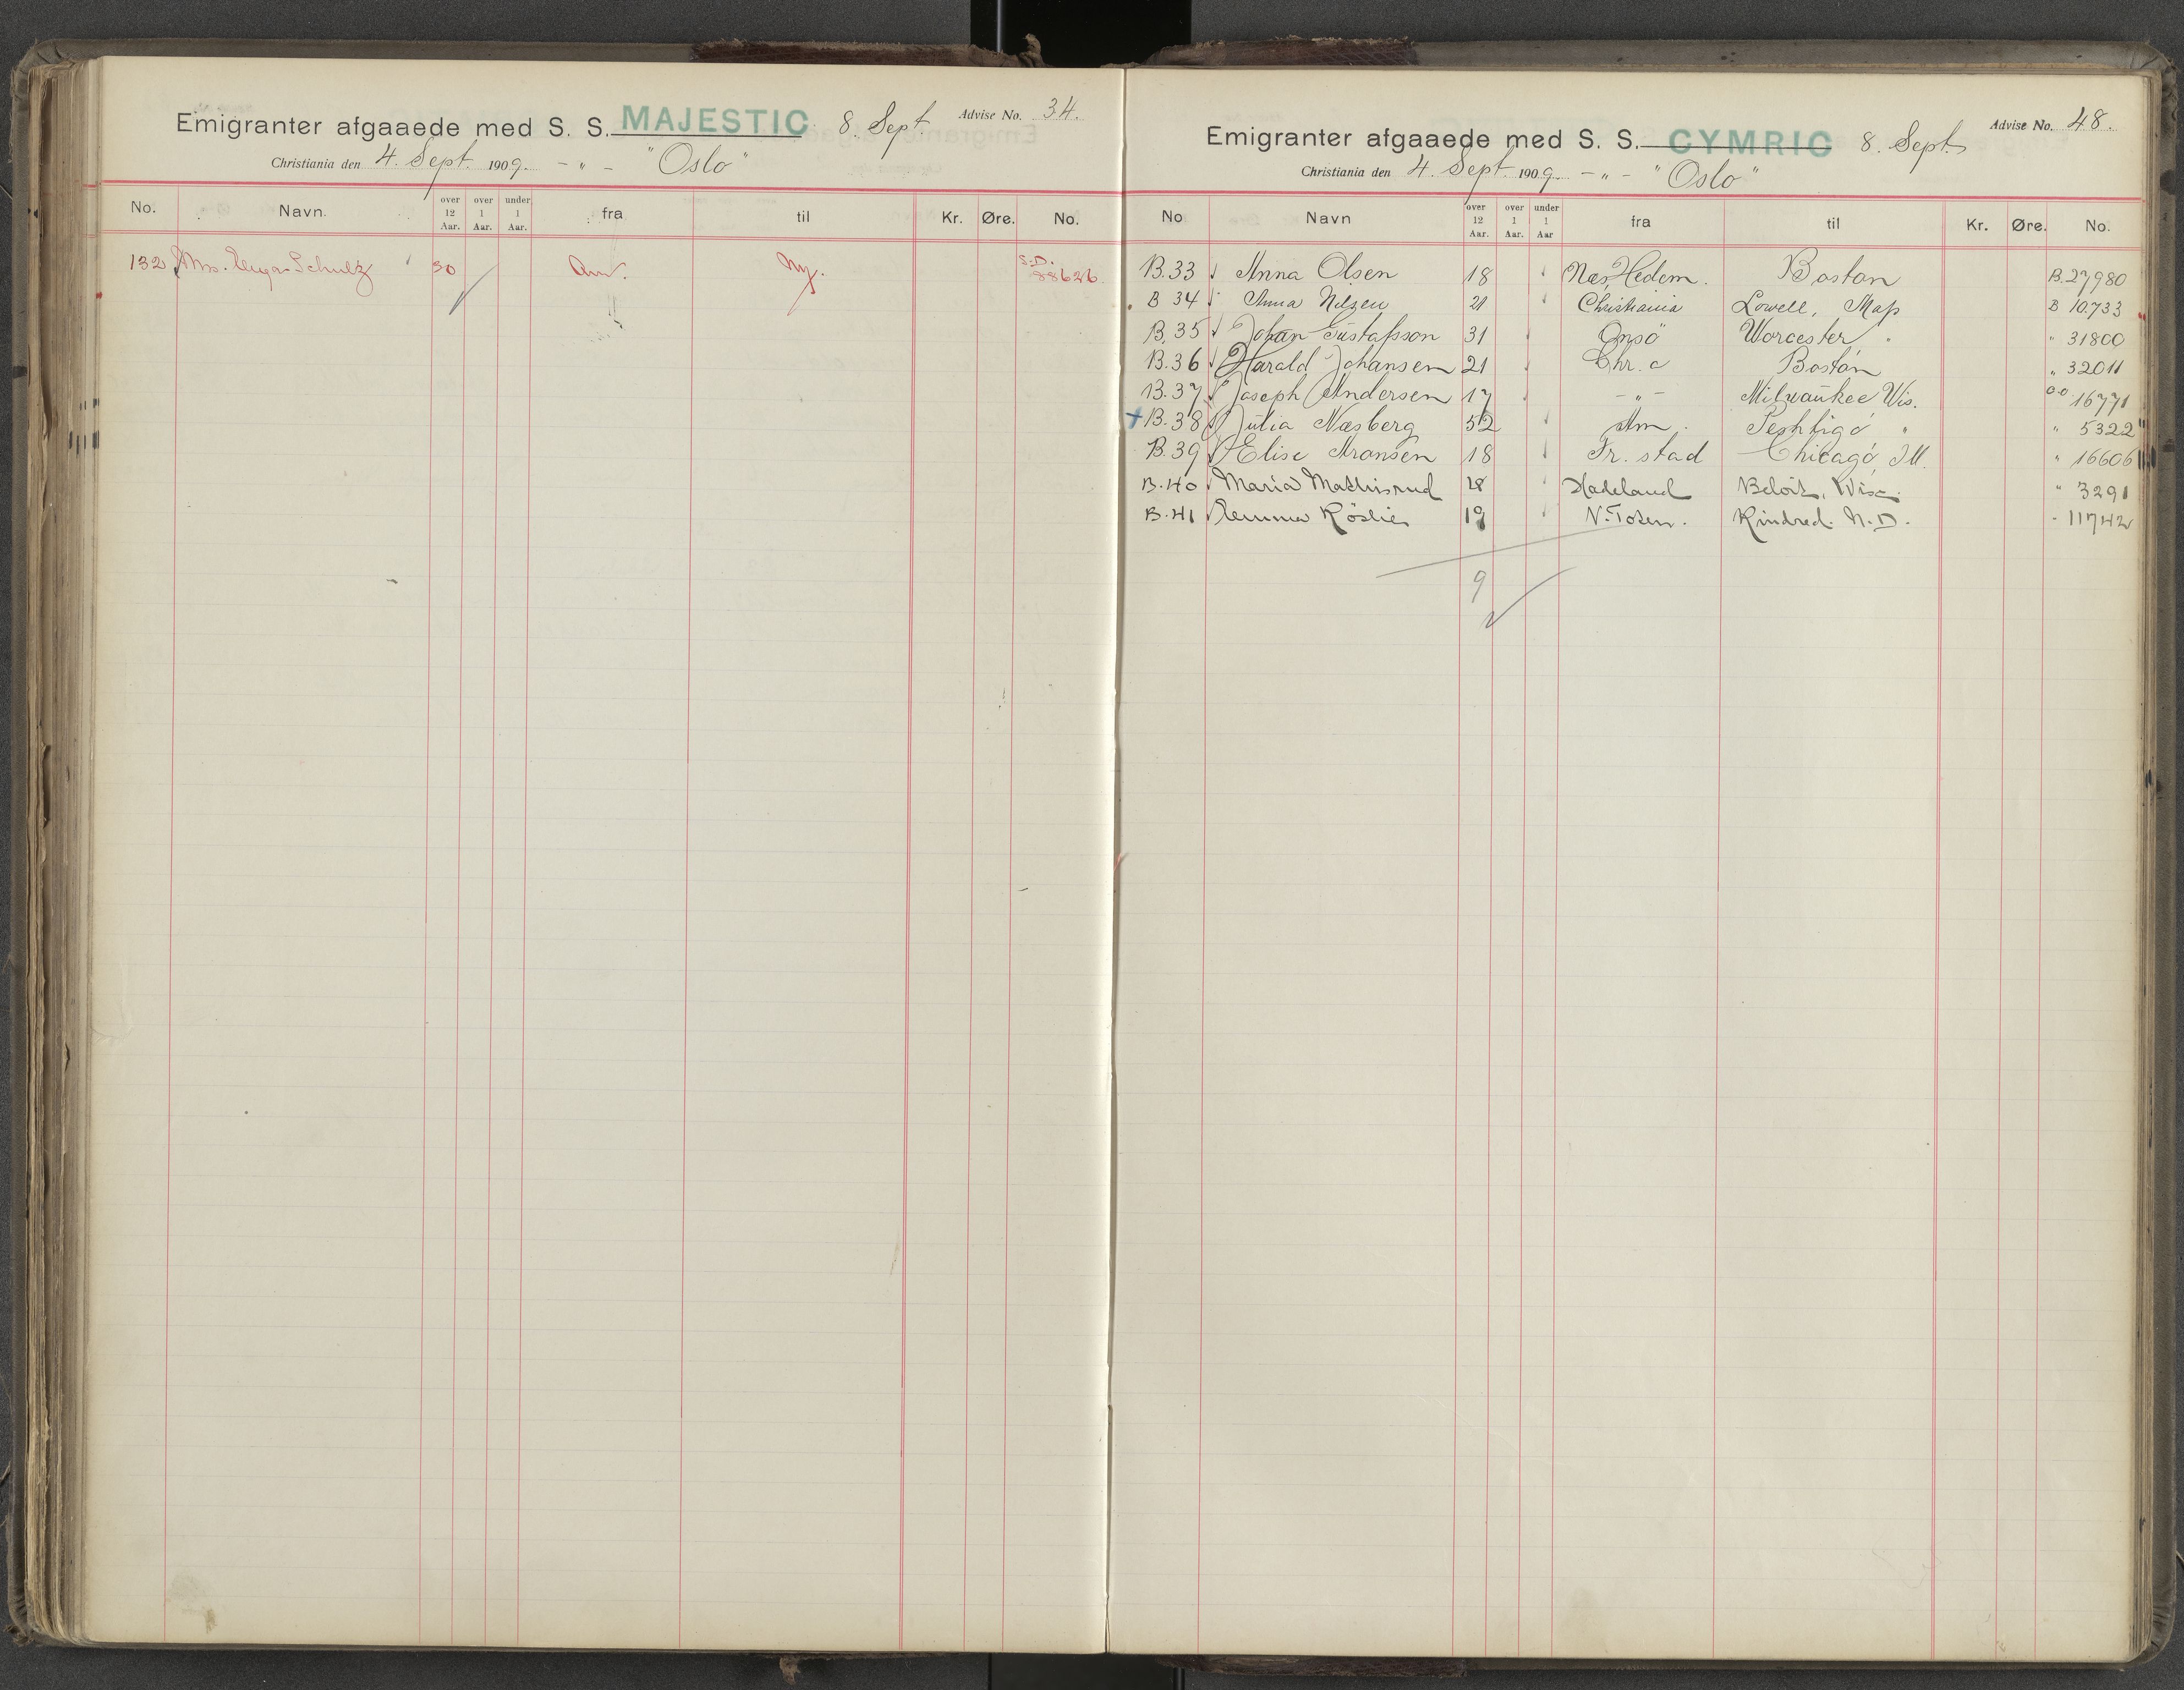 Emigranter afgaaede med S. S. MAJESTIC 8. Sept. Advise No. 34.
Christiania den 4. Sept. 1909. - " - "Oslo"
No. Navn. over 12 Aar. over 1 Aar. under 1 Aar. fra til Kr. Øre. No.
132 Mrs. Schulz 30 Am. Ny. S.D. 88626
Emigranter afgaaede med S. S. CYMRIC 8. Sept. Advise No. 48.
Christiania den 4. Sept. 1909. - " - "Oslo"
No Navn over 12 Aar. over 1 Aar. under 1 Aar fra til Kr. Øre. No.
B.33 Anna Olsen 18 Næs, Hedem. Boston B.27980
B 34 Anna Nilsen 21 Christiania Lowell, Mass B 10.733
B.35 Johan Gustafsson 31 Onsö Worcester " " 31800
B.36 Harald Johansen 21 Chr.a Boston " 32011
B.37 Joseph Andersen 17 - " - Milwaukee Wis. 16771
+ B.38 Julia Næsberg 52 Am. Peshtigo " " 5322
B.39 Elise Aronsen 18 Fr. stad Chicago, Ill. " 16606
B.40 Maria Mathisrud 28 Hadeland Beloit, Wisc. " 3291
B.41 Emma Röslie 19 N. Toten. Kindred. N. D. " 11742
9